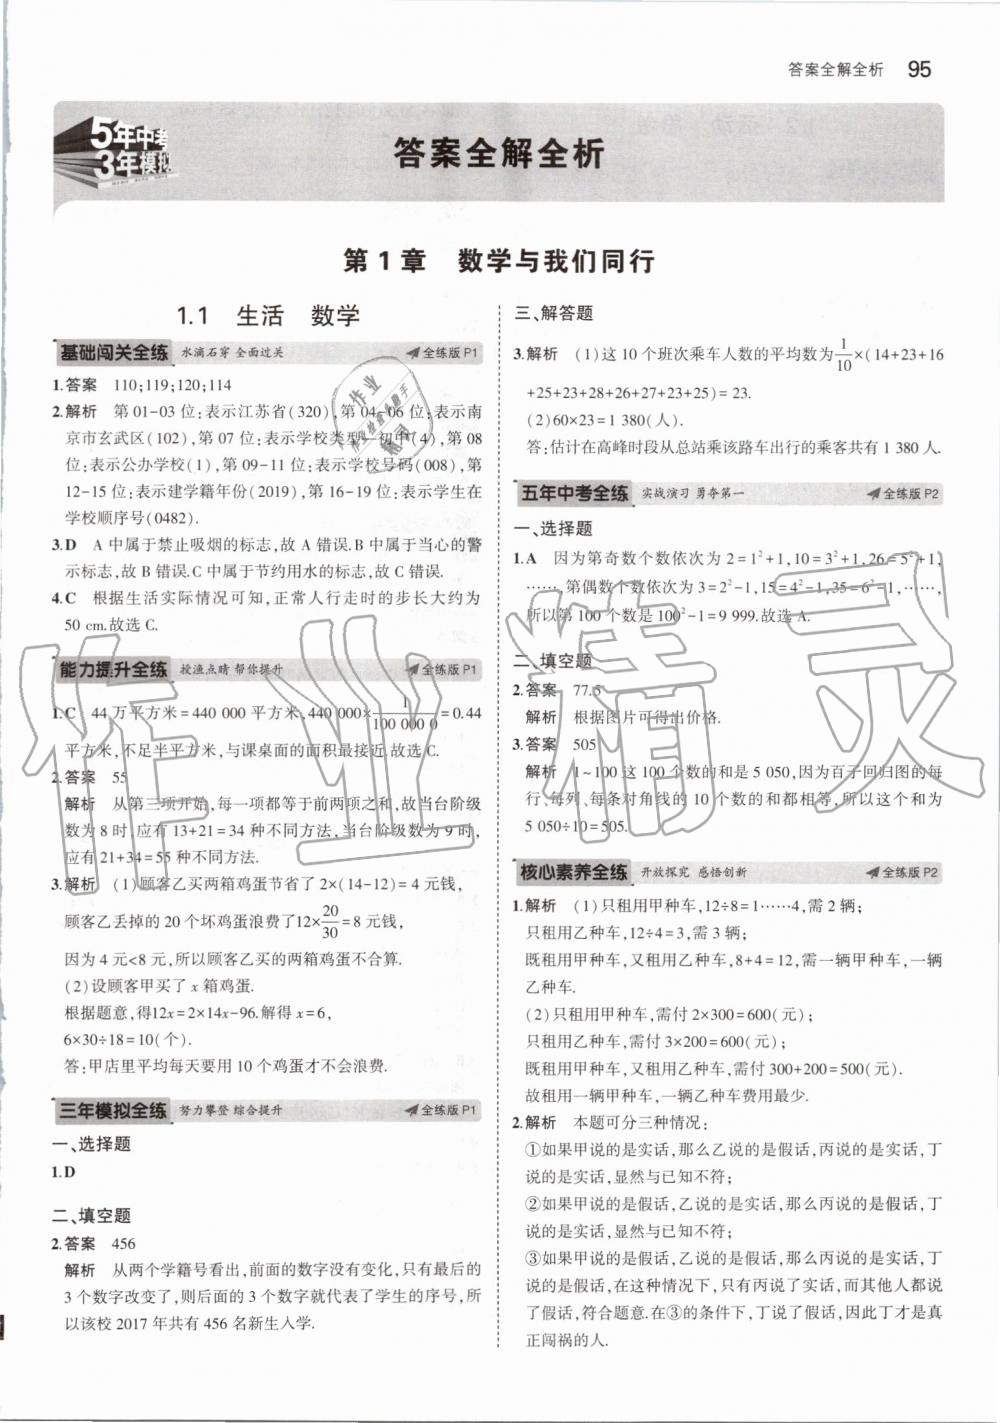 答案全解全析 95
5年中考
3年模拟
答案全解全析
第1章 数学与我们同行
1.1 生活 数学
基础闯关全练 水滴石穿 全面过关 全练版P1
1.答案 110;119;120;114
2.解析 第01-03位:表示江苏省(320),第04-06位:表示南
京市玄武区(102),第07位:表示学校类型—初中(4),第08
位:表示公办学校(1),第09-11位:表示学校号码(008),第
12-15位:表示建学籍年份(2019),第16-19位:表示学生在
学校顺序号(0482).
3.D A中属于禁止吸烟的标志,故A错误.B中属于当心的警
示标志,故B错误.C中属于节约用水的标志,故C错误.
4.C 根据生活实际情况可知,正常人行走时的步长大约为
50 cm.故选C.
能力提升全练 授渔点睛 帮你提升 全练版P1
1.C 44万平方米=440 000平方米,440 000×1/100 000 0=0.44
平方米,不足半平方米,与课桌面的面积最接近.故选C.
2.答案 55
解析 从第三项开始,每一项都等于前两项之和,故当台阶级
数为8时,应有13+21=34种不同方法,当台阶级数为9时,
应有21+34=55种不同方法.
3.解析 (1)顾客乙买两箱鸡蛋节省了2×(14-12)=4元钱,
顾客乙丢掉的20个坏鸡蛋浪费了12×20/30=8元钱,
因为4元<8元,所以顾客乙买的两箱鸡蛋不合算.
(2)设顾客甲买了x箱鸡蛋.
根据题意,得12x=2×14x-96.解得x=6,
6×30÷18=10(个).
答:甲店里平均每天要用10个鸡蛋才不会浪费.
三年模拟全练 努力攀登 综合提升 全练版P1
一、选择题
1.D
二、填空题
2.答案 456
解析 从两个学籍号看出,前面的数字没有变化,只有最后的
3个数字改变了,则后面的3个数字就代表了学生的序号,所
以该校2017年共有456名新生入学.
三、解答题
3.解析 (1)这10个班次乘车人数的平均数为1/10×(14+23+16
+25+23+28+26+27+23+25)=23.
(2)60×23=1 380(人).
答:估计在高峰时段从总站乘该路车出行的乘客共有1 380人.
五年中考全练 实战演习 勇夺第一 全练版P2
一、选择题
1.A 因为第奇数个数依次为2=1²+1,10=3²+1,26=5²+1,
……,第偶数个数依次为3=2²-1,15=4²-1,35=6²-1,……,
所以第100个数是100²-1=9 999.故选A.
二、填空题
2.答案 77.5
解析 根据图片可得出价格.
3.答案 505
解析 1~100这100个数的和是5 050,因为百子回归图的每
行、每列、每条对角线的10个数的和都相等,所以这个和为
5 050÷10=505.
核心素养全练 开放探究 感悟创新 全练版P2
1.解析 (1)只租用甲种车,12÷8=1……4,需2辆;
只租用乙种车,12÷4=3,需3辆;
既租用甲种车,又租用乙种车,8+4=12,需一辆甲种车,一辆
乙种车.
(2)只租用甲种车,需付2×300=600(元);
只租用乙种车,需付3×200=600(元);
既租用甲种车,又租用乙种车,需付300+200=500(元).
故租用一辆甲种车,一辆乙种车费用最少.
2.解析 本题可分三种情况:
①如果甲说的是实话,那么乙说的是假话,丙说的是实话,丁
说的是实话,显然与已知不符;
②如果甲说的是假话,乙说的是实话,那么丙说的是假话,丁
说的是实话,显然与已知不符;
③如果甲说的是假话,乙说的是假话,那么丙说的是实话,丁
说的是假话,在这种情况下,只有丙说了实话,而其他人都说
了假话,符合题意.在③的条件下,丁说了假话,因此丁才是真
正闯祸的人.
作业精灵